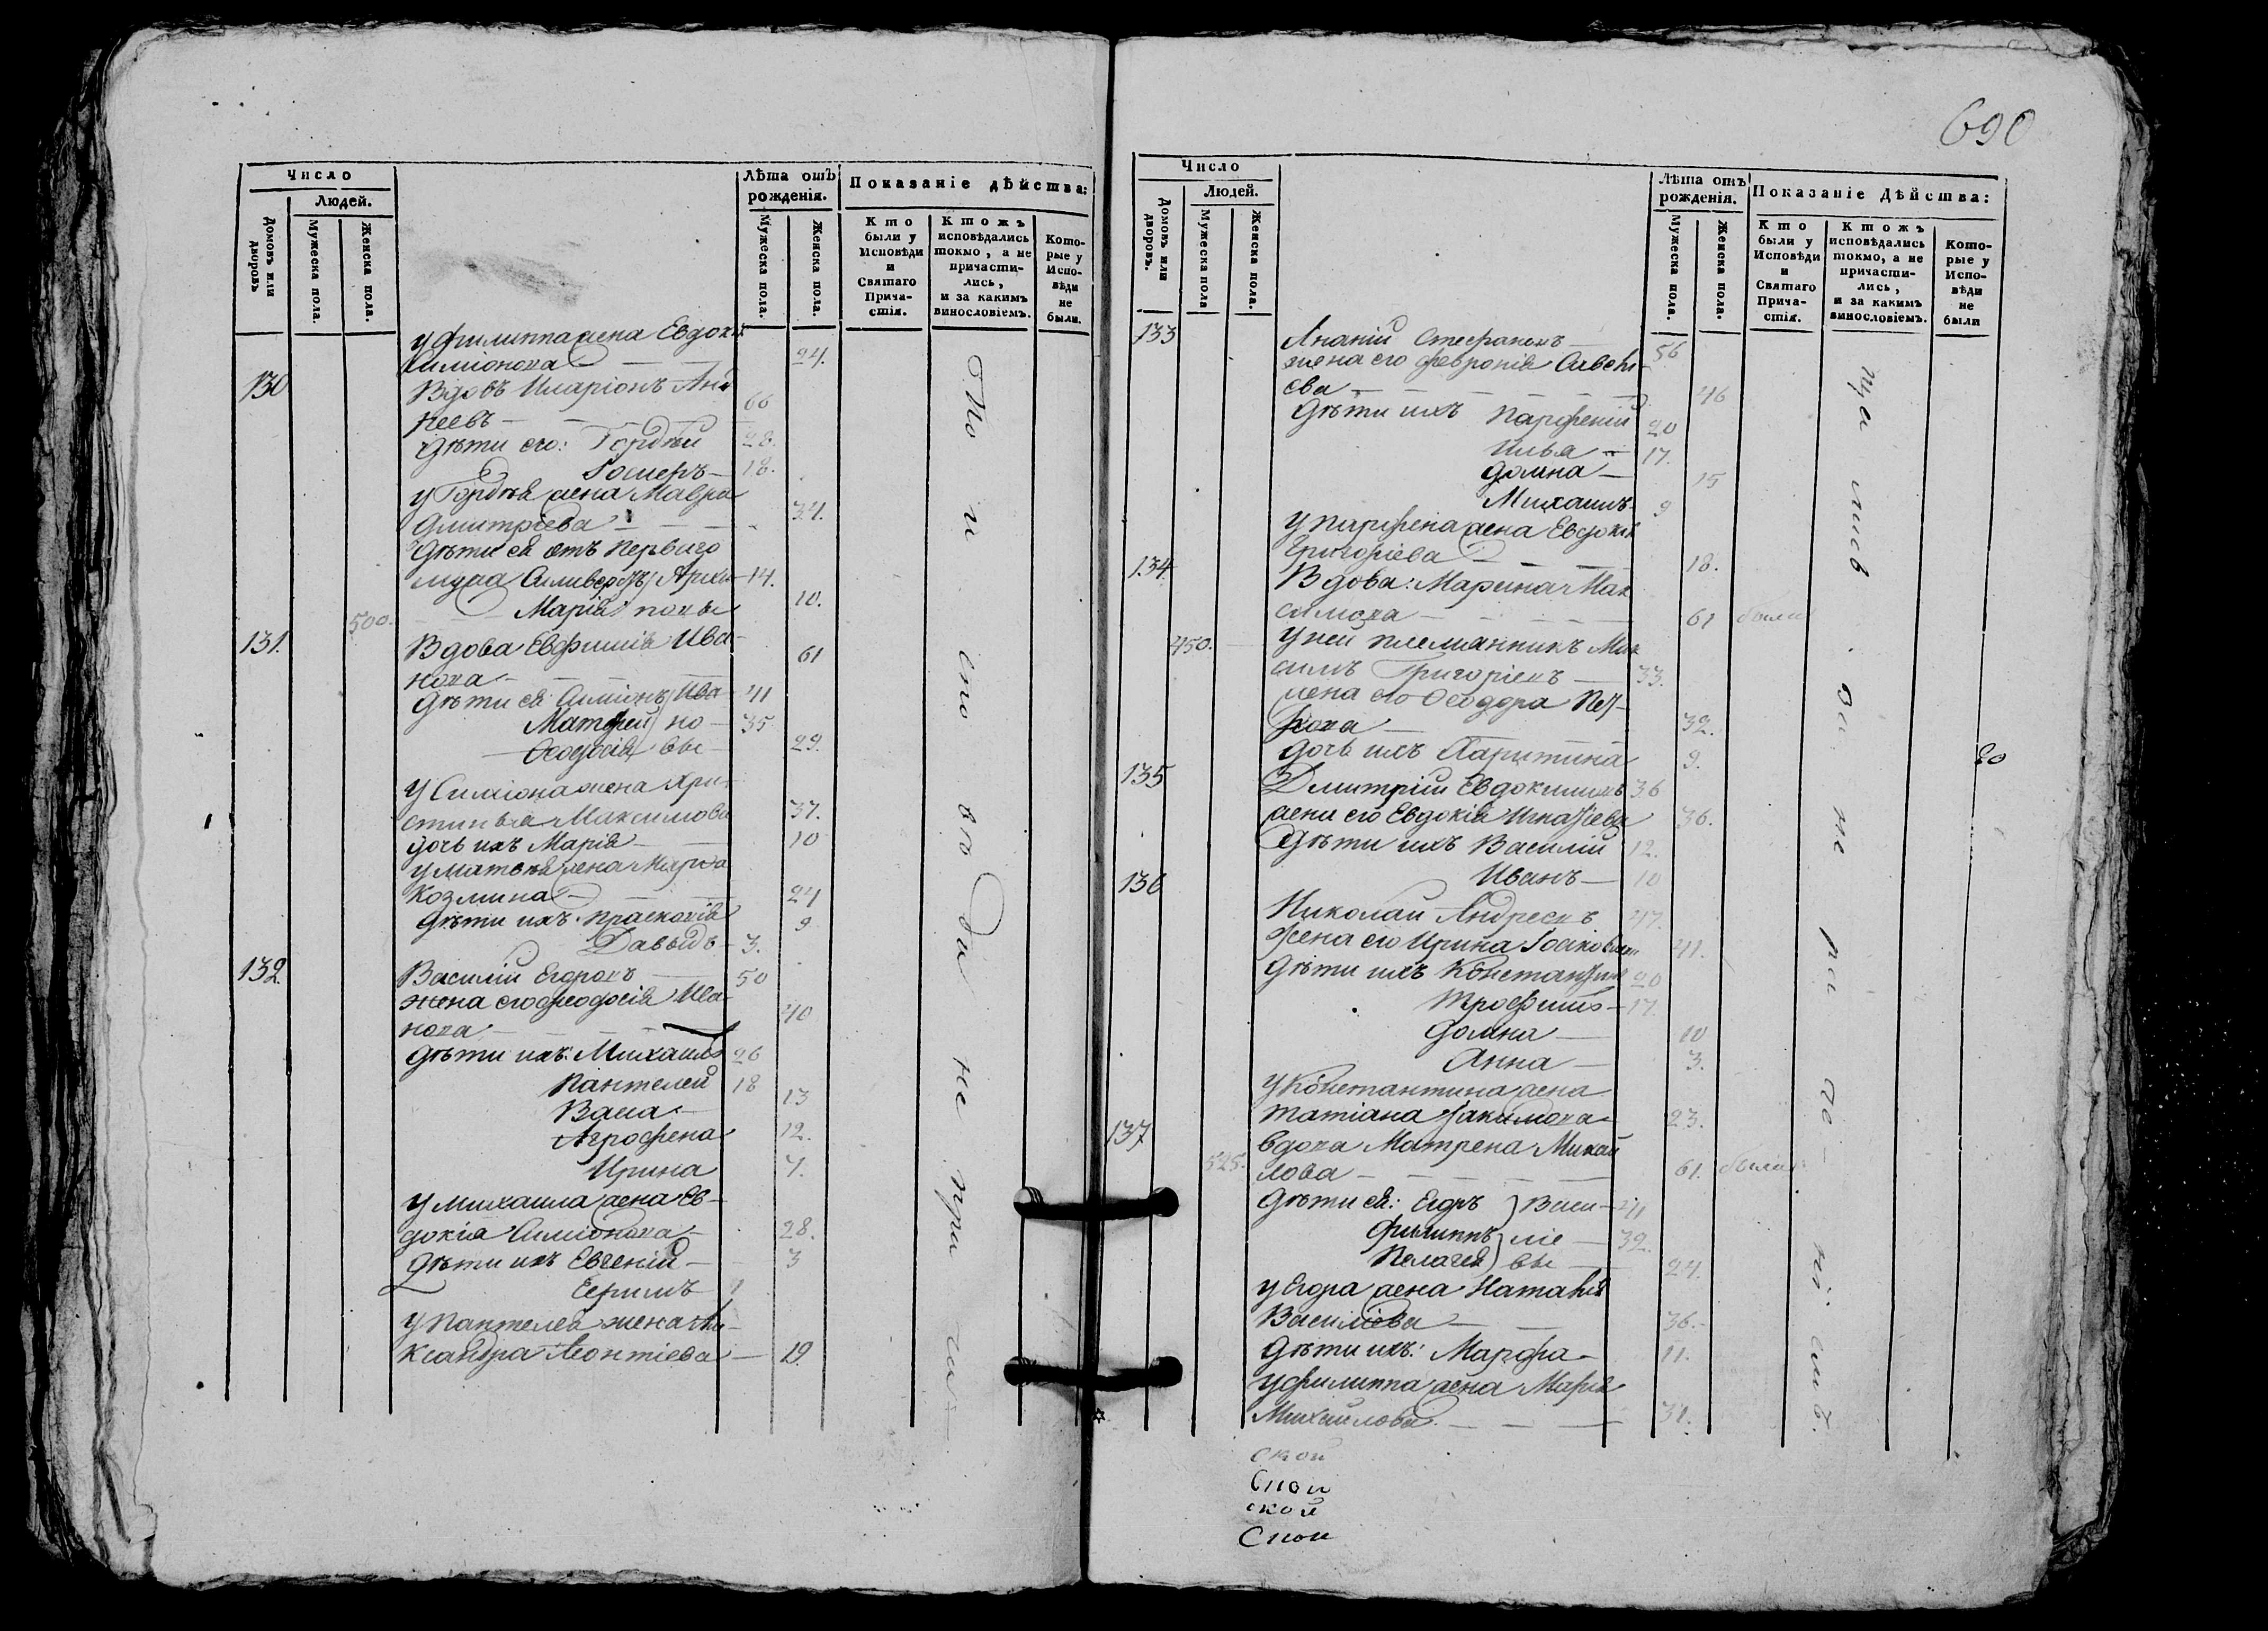 690
Число
Людей.
Домовъ или дворовъ
Мужеска пола.
Женска пола.
Лѣта отъ рожденія.
Мужеска пола.
Женска пола.
Показаніе дѣйства:
Кто были у Исповѣди и Святаго Причастія.
Ктожъ исповѣдались токмо, а не причастились, и за какимъ винословіемъ.
Которые у Исповѣди не были.
у Филиппа жена Евдокія
Симіонова 24.
130 Вдовъ Иларіонъ
66
Дѣти его: Гордѣй 28.
18.
у Гордѣя жена Мавра
Дмитріева 34.
Дѣти ея отъ перваго
мужа 14.
Марія 10.
500.
131. Вдова Евфимія Ива-
нова 61
Дѣти ея Симіонъ Ива- 41
Матфей но- 35
Феодосія вы 29.
у Симіона жена Хри-
стинья Максимова 37.
дочь ихъ Марія 10
у Матвѣя жена Марѳа
Козмина 24
Дѣти ихъ Прасковія 9
Давыдъ 3.
132. Василій Егоровъ 50
жена его Феодосія Ива-
нова 40
Дѣти ихъ: Михаилъ 26
Пантелей 18
Васа 13
Агрофена 12.
Ирина 7.
у Михаила жена Ев-
докія Симіонова 28.
Дѣти ихъ Евгеній 3
у Пантелея жена Але-
ксандра Леонтіева 19.
По и спо вѣ ди не при ча
Число
Людей.
Домовъ или дворовъ.
Мужеска пола
Женска пола.
Лѣта отъ рожденія.
Мужеска пола.
Женска пола.
Показаніе Дѣйства:
Кто были у Исповѣди и Святаго Причастія.
Ктожъ исповѣдались токмо, а не причастились, и за какимъ винословіемъ.
Которые у Исповѣди не были
133 Ананій Стефановъ 56
жена его Февронія Савель-
ева 46
Дѣти ихъ Парфеній 20
Илья 17.
Домна 15
Михаилъ 9
у Парфена жена Евдокія
Григоріева 18.
134. Вдова: Марина Мак
симова 61 была
450. У ней племянникъ Мак
симъ Григоріевъ 33.
жена его Феодора Пет-
рова 32.
дочь ихъ 9.
135 Дмитрій Евдокимовъ 36
жена его Евдокія Игнатіева 36.
Дѣти ихъ Василій 12.
Иванъ 10
136 Николай Андреевъ 47.
жена его Ирина 41.
Дѣти ихъ Констант 20
Трофимъ 17.
Домна 10
Анна 3.
у Константина жена
Татіана 23.
137 вдова Матрена Михай
лова 61. была
525.
Дѣти ея: Егоръ Васи- 41
Филиппъ ліе 32.
Пелагея вы 24.
у Егора жена Наталія
Василіева 36.
Дѣти ихъ: Марфа 11.
у Филиппа жена Марія
Михайлова 31.
80
ской
ской